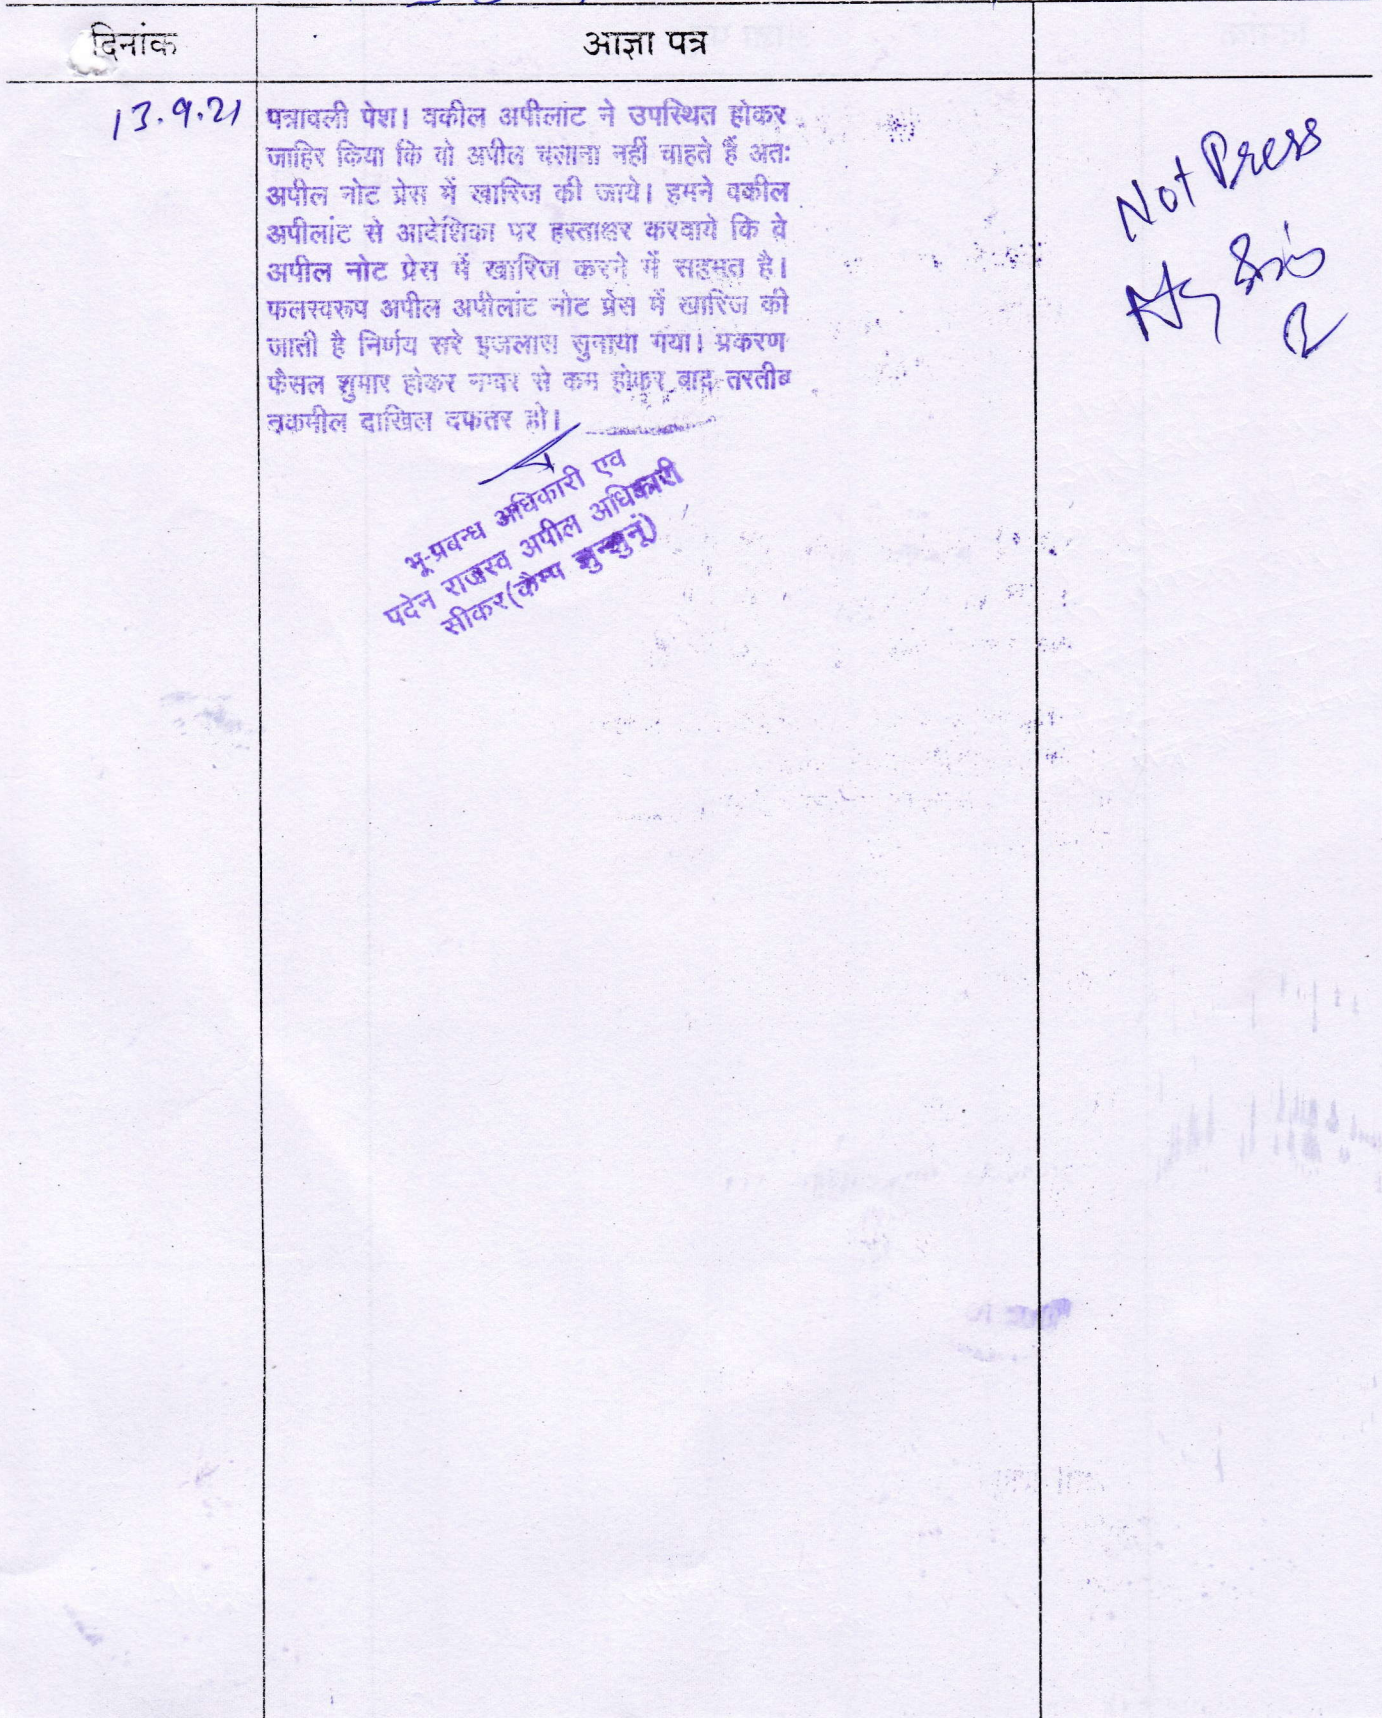 दिनांक
आज्ञा पत्र
13.9.21
पत्रावली पेश। वकील अपीलांट ने उपस्थित होकर
जाहिर किया कि वो अपील चलाना नहीं चाहते हैं अतः
अपील नोट प्रेस में खारिज की जाये। हमने वकील
अपीलांट से आदेशिका पर हस्ताक्षर करवाये कि वे
अपील नोट प्रेस में खारिज करने में सहमत है।
फलस्वरूप अपील अपीलांट नोट प्रेस में खारिज की
जाती है निर्णय सरे इजलास सुनाया गया। प्रकरण
फैसल शुमार होकर नम्बर से कम होकर बाद तरतीब
तकमील दाखिल दफतर हो।
भू-प्रबन्ध अधिकारी एव
पदेन राजस्व अपील अधिकारी
सीकर(कैम्प झुन्झुनूं)
Not Press